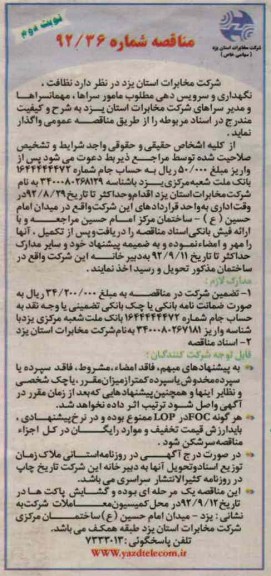 نوبت دوم
شرکت مخابرات استان یزد
(سهامی خاص)
مناقصه شماره ۹۲/۳۶
شرکت مخابرات استان یزد در نظر دارد نظافت ،
نگهداری و سرویس دهی مطلوب مامور سراها ، مهمانسراها
و مدیر سراهای شرکت مخابرات استان یزد به شرح و کیفیت
مندرج در اسناد مربوطه را از طریق مناقصه عمومی واگذار
نماید .
از کلیه اشخاص حقیقی و حقوقی واجد شرایط و تشخیص
صلاحیت شده توسط مراجع ذیربط دعوت می شود پس از
واریز مبلغ ۵۰/۰۰۰ ریال به حساب جام شماره ۱۶۴۴۴۴۴۴۷۲
بانک ملت شعبه مرکزی یزد باشناسه ۳۴۰۰۰۸۰۲۶۸۱۲۹ به نام
شرکت مخابرات استان یزد اقدام و حداکثر تا تاریخ ۹۲/۸/۲۹ در
وقت اداری به واحد قراردادهای این شرکت واقع در میدان امام
حسین (ع) - ساختمان مرکز امام حسین مراجعه و با
ارائه فیش بانکی اسناد مناقصه را دریافت و پس از تکمیل ، آنها
را مهر و امضاء نموده و به ضمیمه پیشنهاد خود و سایر مدارک
حداکثر تا تاریخ ۹۲/۹/۱۱ به دبیر خانه این شرکت واقع در
ساختمان مذکور تحویل و رسید اخذ نمایند .
مدارک لازم :
۱- تضمین شرکت در مناقصه به مبلغ ۳۴/۲۰۰/۰۰۰ ریال به
صورت ضمانت نامه بانکی یا چک بانکی تضمینی یا وجه نقد به
حساب جام شماره ۱۶۴۴۴۴۴۴۷۲ بانک ملت شعبه مرکزی یزد با
شناسه واریز ۳۴۰۰۰۸۰۲۶۷۱۸۱ به نام شرکت مخابرات استان یزد
۲- اسناد مناقصه
قابل توجه شرکت کنندگان :
به پیشنهادهای مبهم، فاقد امضاء ، مشروط ، فاقد سپرده یا
سپرده مخدوش یا سپرده کمتر از میزان مقرر، یا چک شخصی
و نظایر اینها و همچنین پیشنهادهایی که بعد از زمان مقرر در
آگهی واصل شود ترتیب اثر داده نخواهد شد.
هر گونه FOC در LOP ممنوع بوده و در نرخ پیشنهادی ،
باید ارزش قیمت تخفیف و موارد رایگان در کل اجزاء
مناقصه سرشکن شود .
در صورت درج آگهی در روزنامه استانی ملاک زمان
توزیع اسناد و تحویل آنها به دبیر خانه این شرکت تاریخ چاپ
در روزنامه کثیرالانتشار سراسری می باشد.
این مناقصه یک مرحله ای بوده و گشایش پاکت ها در
تاریخ ۹۲/۹/۱۲ در محل کمیسیون معاملات شرکت به
نشانی : یزد - میدان امام حسین (ع) ساختمان مرکزی
شرکت مخابرات استان یزد طبقه همکف می باشد.
تلفن پاسخگوئی : ۷۳۳۳۰۱۳
www.yazdtelecom.ir